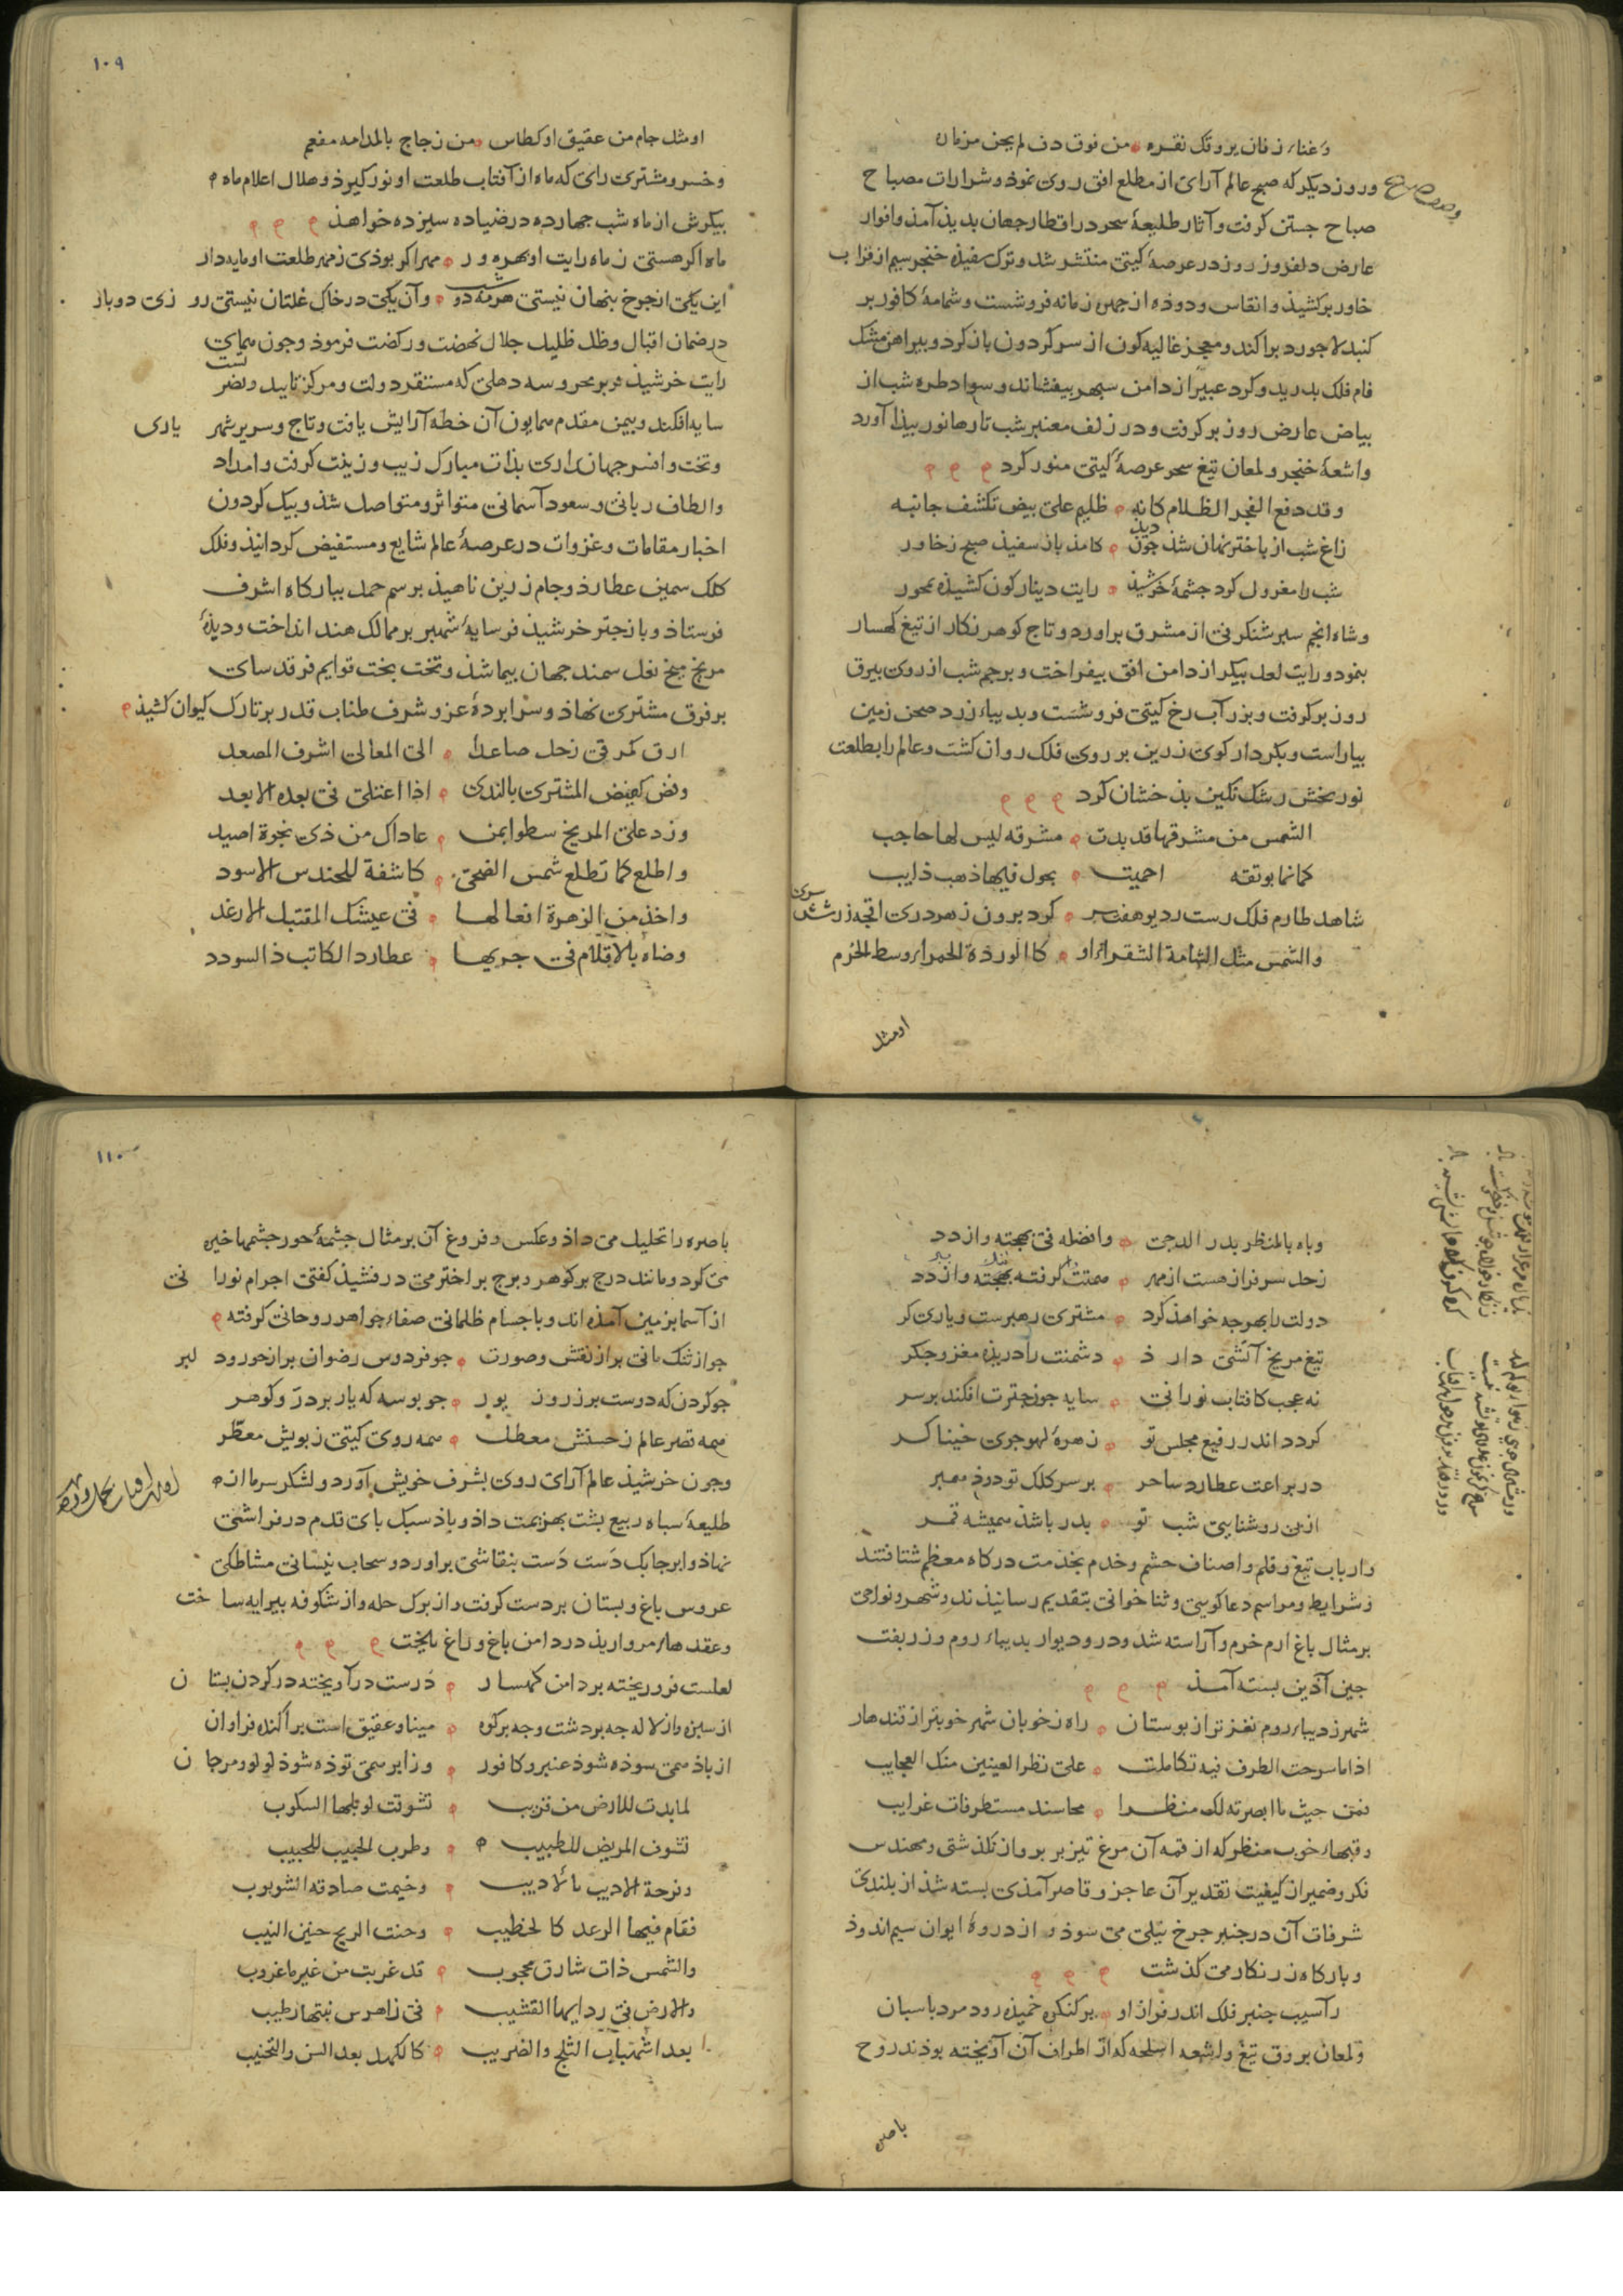 وغناء زنان بروتک نقره من فوق دف لم یحن مزمار
وروز دیکر که صبح عالم آرای از مطلع افق روی نموذ و شرارات مصباح
وصف صبح
صباح جستن کرفت و آثار طلیعهٔ سحر در اقطار جهان بدیذ آمذ و انوار
عارض دلفروز روز در عرصهٔ کیتی منتشر شد و ترک سفیذه خنجر سیم از قراب
خاور برکشیذ و انقاس و دوذه از جهرهٔ زمانه فروشست و شمامهٔ کافور بر
کنبد لاجورد براکند و معجر غالیه کون از سر کردون باز کرد و بیراهن مشک
فام فلک بدرید و کرد عبیر از دامن سبهر بیفشاند و سواد طره شب از
بیاض عارض روز بر کرفت و در زلف معنبر شب تارها نور بیذا آورد
واشعهٔ خنجر و لمعان تیغ سحر عرصهٔ کیتی منور کرد
وقد دفع الفجر الظلام کانه ظلیم علی بیض تکشف جانبه
زاغ شب از باختر نهان شذ جون دید کامذ باز سفیذ صبح ز خاور
شب را معزول کرد جشمهٔ خرشیذ رایت دینار کون کشیذه بمحور
وشاه انجم سبر شنکرفی از مشرق براورد و تاج کوهر نکار از تیغ کهسار
بنمود و رایت لعل بیکر از دامن افق بیفراخت و برجم شب از روی بیرق
روز بر کرفت و بزر آب رخ کیتی فروشست و بدیباء زرد صحن زمین
بیاراست و بکردار کوی زرین بر روی فلک روان کشت و عالم را بطلعت
نوربخش رشک نکین بذخشان کرد
الشمس من مشرقها قد بدت مشرقه لیس لها حاجب
کانها بوتقه احمیت یجول فیها ذهب ذایب
شاهد طارم فلک رست ز دیو هفت سر کرد برون ز هر دری اتجه زر شش سری
والشمس مثل الشامة الشقراء او کالوردة الحمراء وسط الخرم
اومثل
۱۰۹
اومثل جام من عقیق او کطاس من زجاج بالمدامه مفعم
وخسرو مشتری رای که ماه از آفتاب طلعت او نور کیرذ و هلال اعلام ماه
بیکرش از ماه شب جهارده در ضیا ده سیزده خواهذ
ماه اکر هستی ز ماه رایت او بهره ور مهر اکر بوذی ز مهر طلعت او مایه دار
این یکی از جرخ بنهان نیستی هر مه دو شب وآن یکی در خاک غلتان نیستی روزی دوبار
در ضمان اقبال و ظل ظلیل جلال نهضت و رکضت فرموذ و جون همای
رایت خرشیذ فر بر محروسه دهلی که مستقر دولت و مرکز تایید و نصرتست
سایه افکند و بیمن مقدم همایون آن خطه آرایش یافت و تاج و سریر شهریاری
وتخت و افسر جهانداری بذات مبارک زیب و زینت کرفت و امداد
والطاف ربانی و سعود آسمانی متواتر و متواصل شذ و بیک کردون
اخبار مقامات و غزوات در عرصهٔ عالم شایع و مستفیض کردانیذ و فلک
کلک سمین عطارذ و جام زرین ناهیذ برسم حمل ببارکاه اشرف
فرستاذ و باز جتر خرشیذ فر سایهٔ شهبر بر ممالک هند انداخت و دیذهٔ
مریخ میخ نعل سمند جهان بیما شذ و تخت بخت قوایم فرقد سای
بر فرق مشتری نهاذ و سرابردهٔ عز و شرف طناب قدر بر تارک کیوان کشیذ
ارق کمرقی زحل صاعداً الی المعالی اشرف المصعد
وفض کفیض المشتری بالندی اذا اعتلی فی بعده الابعد
وزد علی المریخ سطوا بمن عاداک من ذی نجوة اصید
واطلع کما تطلع شمس الضحی کاشفة للحندس الاسود
واخذ من الزهرة افعالها فی عیشک المقتبل الارغد
وضاه بالاقلام فی جریها عطارد الکاتب ذا السودد
وباه بالمنظر بدر الدجی وافضله فی بهجته وازدد
زحل سرفراز هست از مهر همتت کرفته
دولت را بهر جه خواهذ کرد مشتری رهبرست و یاری کر
تیغ مریخ آتشی دارذ دشمنت را دریذه مغز و جکر
نه عجب کافتاب نورانی سایه جون جترت افکند بر سر
کردد اندر رفیع مجلس تو زهرهٔ لهوجوی خنیاکر
در براعت عطارد ساحر بر سر کلک تو درذ معبر
از بی روشنایی شب تو بدر باشذ همیشه قمر
وارباب تیغ و قلم و اصناف حشم و خدم بخذمت درکاه معظم شتافتند
وشرایط و مراسم دعاکویی و ثناخوانی بتقدیم رسانیذند و شهر و نواحی
بر مثال باغ ارم خرم و آراسته شد و در و دیوار بدیباء روم و زربفت
جین آذین بسته آمذ
شهر ز دیباء روم نغزتر از بوستان راه ز خوبان شهر خوبتر از قندهار
اذا ما سرحت الطرف فیه تکاملت علی نظر العینین منک العجایب
فمن حیث ما ابصرته لک منظرا محاسنه مستطرفات غرایب
وقبهاء خوب منظر که از قمه آن مرغ تیز بر برواز نکذشتی و مهندس
فکر و ضمیر از کیفیت تقدیر آن عاجز و قاصر آمذی بسته شذ از بلندی
شرفات آن در جنبر جرخ نیلی می سوذ و از ذروهٔ ایوان سیم اندوذ
وبارکاه زرنکار می کذشت
زآسیب جنبر فلک اندر فراز او بر کنکره خمیذه رود مرد باسبان
ولمعان بروق تیغ و اشعه اسلحه که از اطراف آن آویخته بوذند روح
باصره
۱۱۰
باصره را تحلیل می داذ و عکس و فروغ آن بر مثال جشمهٔ خور جشمها خیره
می کرد و مانند درج بر کوهر و برج بر اختر می درفشیذ کفتی اجرام نورانی
از آسما بزمین آمذه اند و با جسام ظلمانی صفاء جواهر روحانی کرفته
جو ارتنک مانی بر از نقش و صورت جو فردوس رضوان بر از حور و دلبر
جو کردن که دوست بر زر و زیور جو بوسه که یار بر در و کوهر
همه قصر عالم ز حسنش معطل همه روی کیتی ز بویش معطر
وجون خرشیذ عالم آرای روی بشرف خویش آورد و لشکر سرما از
طلیعهٔ سباه ربیع بشت بهزیمت داذ و باذ سبک بای قدم در فراشی
نهاذ و ابر جابک دست دست بنقاشی براورد و سحاب نیسانی مشاطکی
عروس باغ و بستان بر دست کرفت و از برک حله و از شکوفه بیرایه ساخت
وعقدهاء مرواریذ در دامن باغ و راغ بیخت
لعلست فرو ریخته بر دامن کهسار درست در آویخته در کردن بستان
از سبزه و از لاله جه بر دشت و جه بر کوه مینا و عقیق است براکنده فراوان
از باذ همی سوذه شوذ عنبر و کافور وز ابر همی توذه شوذ لولو و مرجان
لما بدت للارض من قریب تشوقت لوبلها السکوب
تشوف المریض للطبیب وطرب الحبیب للحبیب
وفرحة الادیب بالادیب وخیمت صادقه الشوبوب
فقام فیها الرعد کالخطیب وحنت الریح حنین النیب
والشمس ذات شارق محجوب قد غربت من غیر ما غروب
والارض فی ردایها القشیب فی زاهر من نبتها رطیب
بعد اشهباب الثلج والضریب کالکهل بعد السن والتحنیب